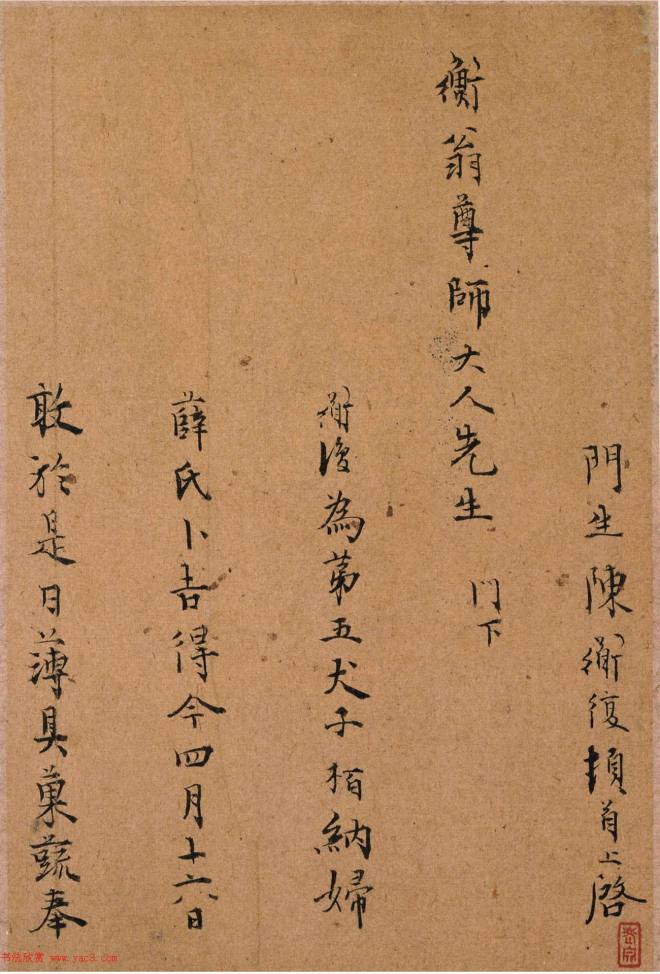 門生陳衡復頓首上啓
衡翁尊師大人先生 門下
衡復為第五犬子栢納婦
薛氏卜吉得今四月十六日
敢於是日薄具菓蔬奉
书法欣赏 www.yac8.com